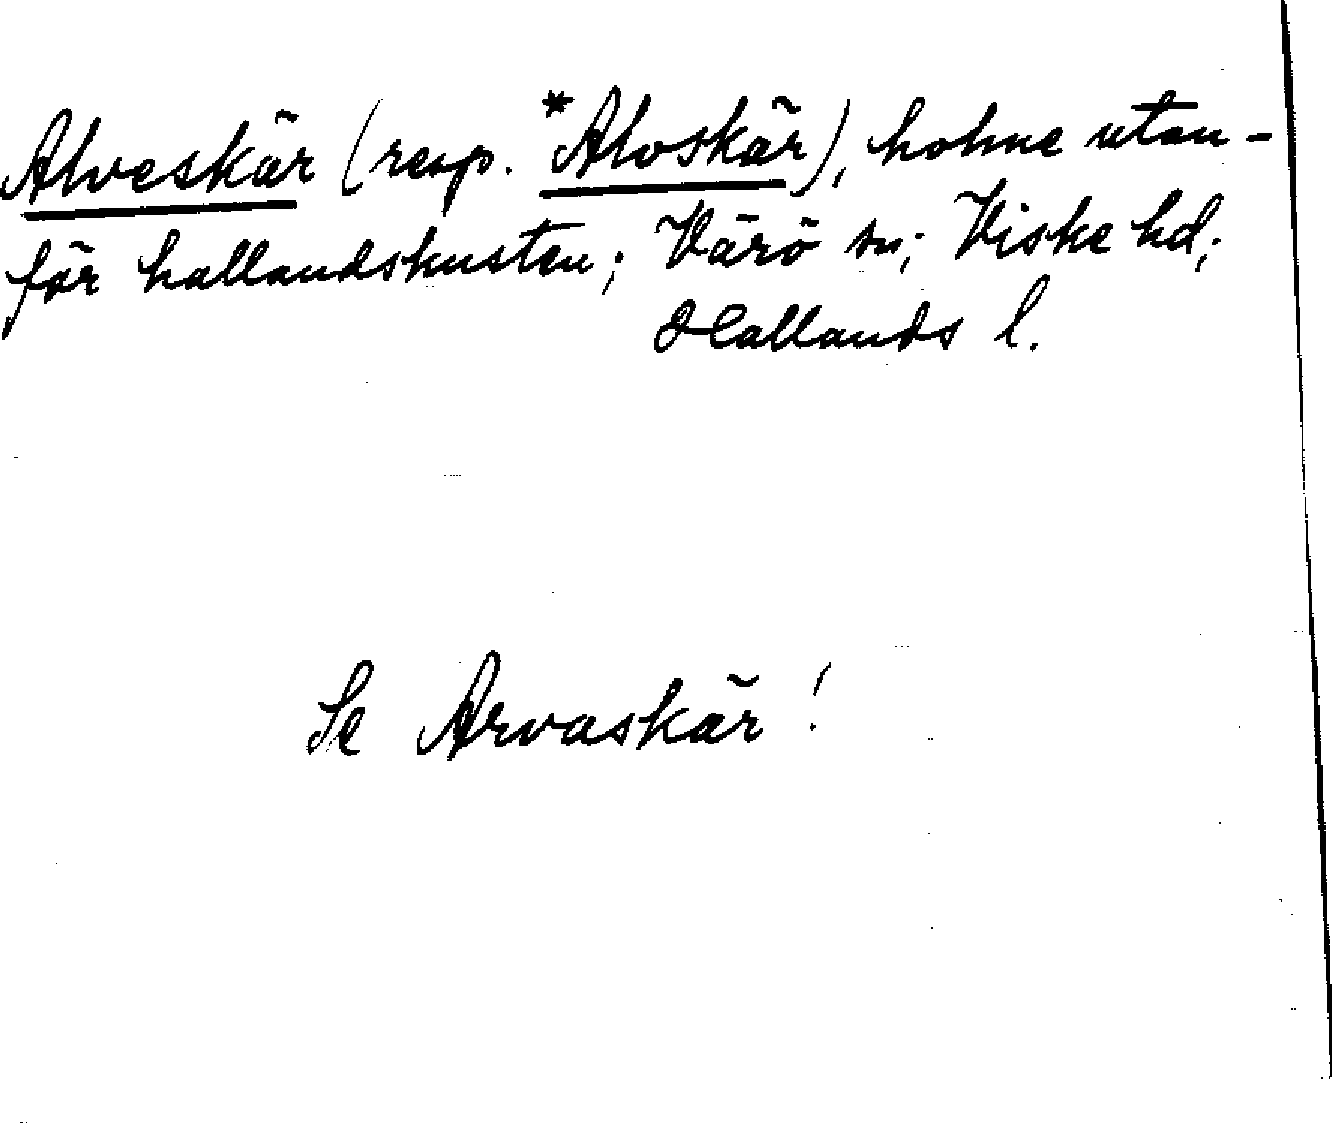 Alveskär (resp. *Aloskär), holme utan-
för hallandskusten; Värö sn; Viske hd;
Hallands l.
Se Arvaskär!